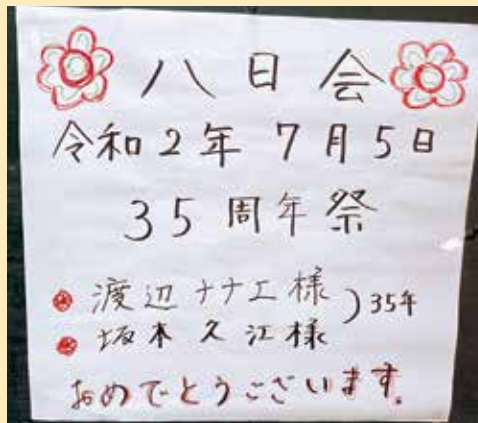 八日会
令和2年 7月5日
35周年祭
渡辺ナナエ様
坂本久江様 ) 35年
おめでとうございます。